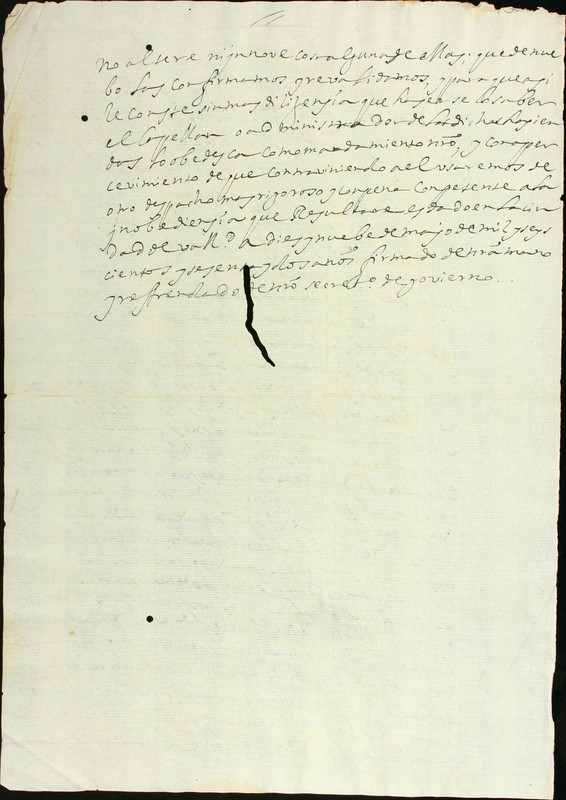 no altere ni jnnove cosa alguna de ellas; que de nue
bo las confirmamos y revalidamos, y para que asi
le conste sin mas dilizensia que haserselo saber
el Capellan o administrador de las dichas hasien
das lo obedesca como mandamiento nro, y con aper
cevimiento de que contraviniendo a el usaremos de
otro despacho mas rigoroso y con pena conpetente a la
jnobediensia que Resultare es dado en la ciu
dad de vall.d a dies y nuebe de mayo de mil y seys
cientos y sesenta y dos años firmado de nra mano
y refrendado de nro secret.o de govierno..